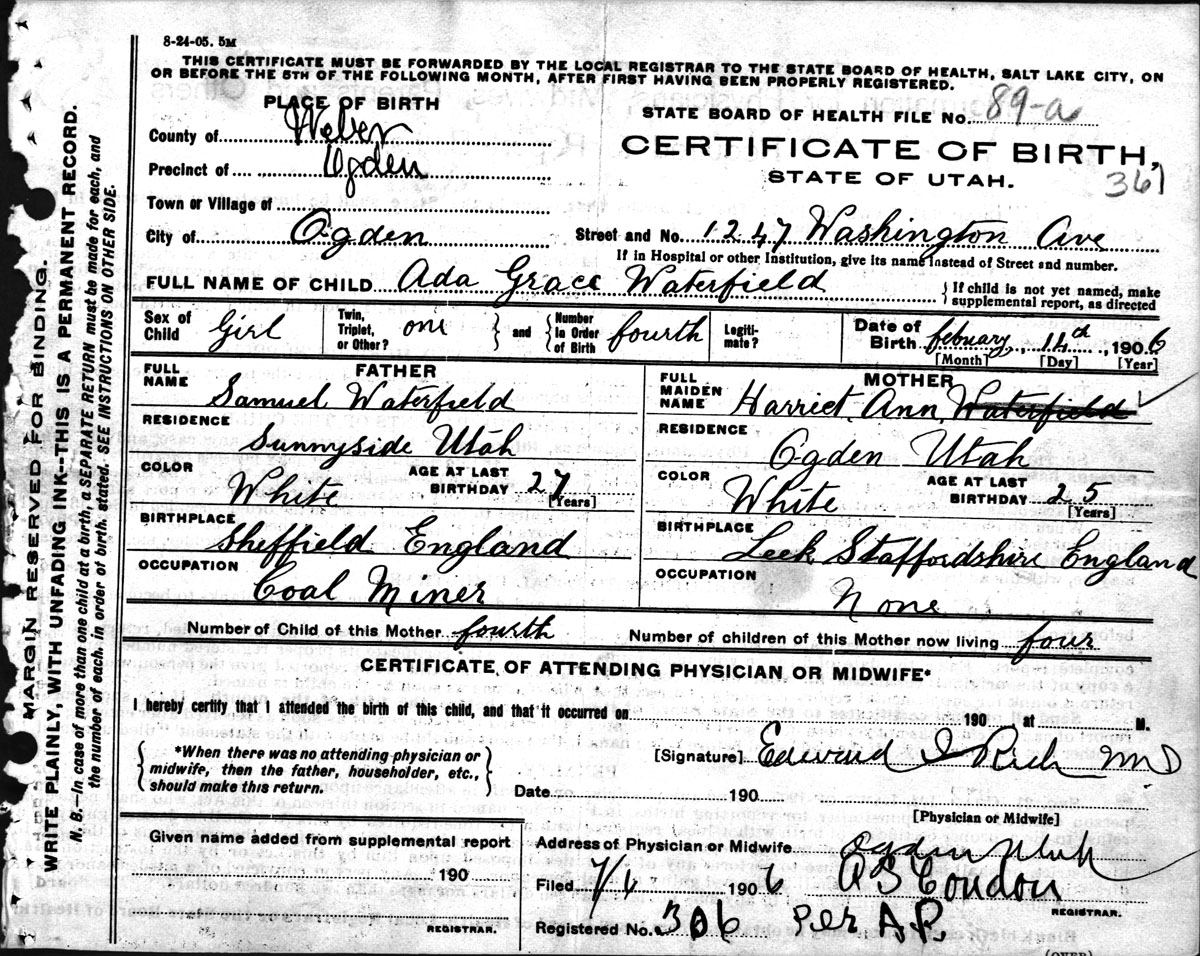 8-24-05. 5M
THIS CERTIFICATE MUST BE FORWARDED BY THE LOCAL REGISTRAR TO THE STATE BOARD OF HEALTH, SALT LAKE CITY, ON
OR BEFORE THE 5TH OF THE FOLLOWING MONTH, AFTER FIRST HAVING BEEN PROPERLY REGISTERED.
PLACE OF BIRTH
STATE BOARD OF HEALTH FILE No. 89-a
County of Weber
CERTIFICATE OF BIRTH,
Precinct of Ogden
STATE OF UTAH.
361
Town or Village of
City of Ogden
Street and No. 1247 Washington Ave
If in Hospital or other Institution, give its name instead of Street and number.
FULL NAME OF CHILD Ada Grace Waterfield
{ If child is not yet named, make
supplemental report, as directed
Sex of Child Girl
Twin, Triplet, or Other? one
{ and }
Number in Order of Birth fourth
Legiti-mate?
Date of Birth February, 14th, 1906
[Month] [Day] [Year]
FATHER
FULL NAME Samuel Waterfield
RESIDENCE
Sunnyside Utah
COLOR White
AGE AT LAST BIRTHDAY 27
[Years]
BIRTHPLACE
Sheffield England
OCCUPATION
Coal Miner
MOTHER
FULL MAIDEN NAME Harriet Ann Waterfield
RESIDENCE
Ogden Utah
COLOR White
AGE AT LAST BIRTHDAY 25
[Years]
BIRTHPLACE
Leek Staffordshire England
OCCUPATION
None
Number of Child of this Mother fourth
Number of children of this Mother now living four
CERTIFICATE OF ATTENDING PHYSICIAN OR MIDWIFE*
I hereby certify that I attended the birth of this child, and that it occurred on 190 , at M.
{ *When there was no attending physician or
midwife, then the father, householder, etc.,
should make this return. }
[Signature] Edward I Rich MD
Date 190
[Physician or Midwife]
Given name added from supplemental report
190
REGISTRAR.
Address of Physician or Midwife Ogden Utah
Filed 190 6 Condon
REGISTRAR.
Registered No. 306 Per A.P.
(OVER)
MARGIN RESERVED FOR BINDING.
WRITE PLAINLY, WITH UNFADING INK--THIS IS A PERMANENT RECORD.
N. B.--In case of more than one child at a birth, a SEPARATE RETURN must be made for each, and
the number of each, in order of birth, stated. SEE INSTRUCTIONS ON OTHER SIDE.